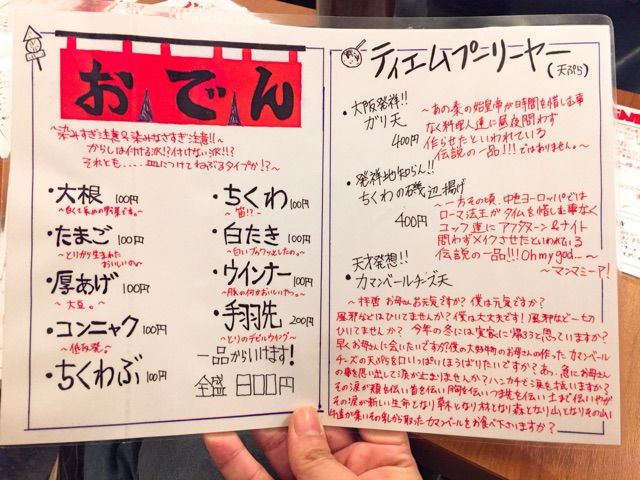 おでん
~染みすぎ注意&染みなさすぎ注意!!~
からしは付ける派!?付けない派!!?
それとも....皿につけてねぶるタイプか!?~
・大根 100円
~白くて長めの野菜です。~
・たまご 100円
~とりから生まれた
おいしいの~
・厚あげ 100円
~大豆。~
・コンニャク 100円
・ちくわぶ 100円
・ちくわ 100円
~笛!?~
・白たき 100円
~白いブワッとしたの。~
・ウインナー 100円
~豚の何かおいしいやつ。~
・手羽先 200円
~とりのデビルウイング~
一品からいけます!
全盛 800円
ティエムプーリーヤー
(天ぷら)
・大阪発祥!!
ガリ天
400円
~あの秦の始皇帝が時間を惜しむ事
なく料理人達に昼夜問わず
作らせたといわれている
伝説の一品!!!ではありません。~
・発祥地知らん!!
ちくわの磯辺揚げ
400円
~一方その頃、中世ヨーロッパでは
ローマ法王がタイムを惜しむ事なく
コック達にアフタヌーン&ナイト
問わずメイクさせたといわれている
伝説の一品!!!Oh my god...~
~マンマミーア!
天才発想!!
・カマンベールチーズ天
~拝啓 お母さんお元気ですか?僕は元気ですか?
風邪などはひいてませんか?僕は大丈夫です!風邪など一切
ひいてませんか?今年の冬には実家に帰ろうと思っていますか?
早くお母さんに会いたいですか?僕の大好物のお母さんの作ったカマンベール
チーズの天ぷらを口いっぱいほうばりたいですか?あ、急にお母さん
の事を思い出して涙が止まりませんか?ハンカチで涙を拭いますか?
その涙が頬を伝い首を伝い胸を伝いつま先を伝い土まで伝いやが
その涙が新しい生命となり草木となり村となり森となり山となりその山に
牛達が集いその乳から取ったカマンベールをお食べ下さいますか?